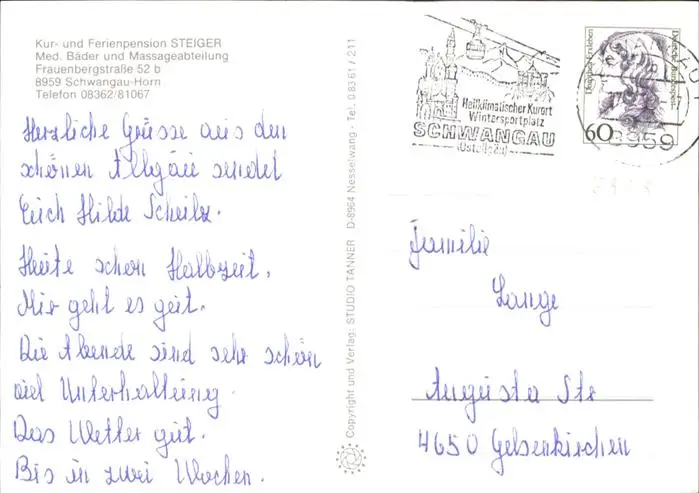 Kur- und Ferienpension STEIGER
Med. Bäder und Massageabteilung
Frauenbergstraße 52 b
8959 Schwangau-Horn
Telefon 08362/81067
Herzliche Grüsse aus dem
schönen Allgäu sendet
Euch Hilde Scheilz.
Heute schon Halbzeit.
Mir geht es gut.
Die Abende sind sehr schön
viel Unterhaltung.
Das Wetter gut.
Bis in zwei Wochen.
Copyright und Verlag: STUDIO TANNER D-8964 Nesselwang · Tel. 08361/211
Heilklimatischer Kurort
Wintersportplatz
SCHWANGAU
(Ostallgäu)
Deutsche Bundespost
60
8959
Familie
Lange
Augusta Str
4650 Gelsenkirchen